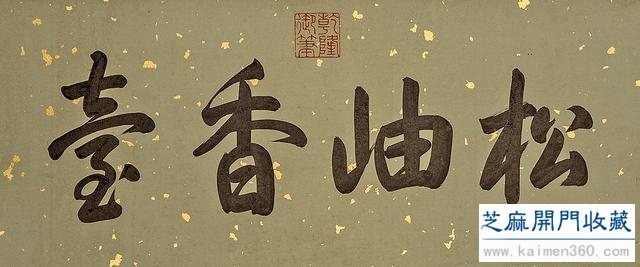 乾隆御筆
松岫香臺
芝麻開門收藏
www.kaimen360.com